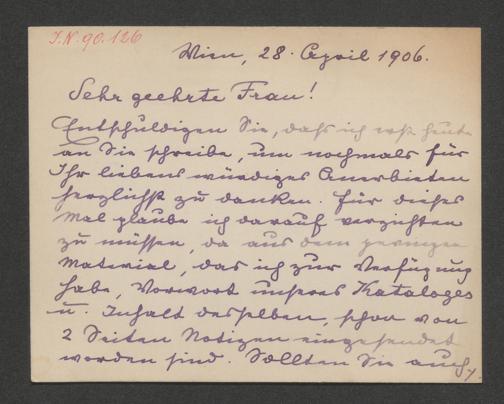 J.N. 90.126
Wien, 28. April 1906.
Sehr geehrte Frau!
Entschuldigen Sie, daß ich erst heute
an Sie schreibe, um nochmals für
Ihr liebenswürdiges Anerbieten
herzlichst zu danken. Für dieses
Mal glaube ich darauf verzichten
zu müssen, da aus dem geringen
Material, das ich zur Verfügung
habe, Vorwort unseres Kataloges
u. Inhalt desselben, schon von
2 Seiten Notizen eingesendet
worden sind. Sollten Sie auch